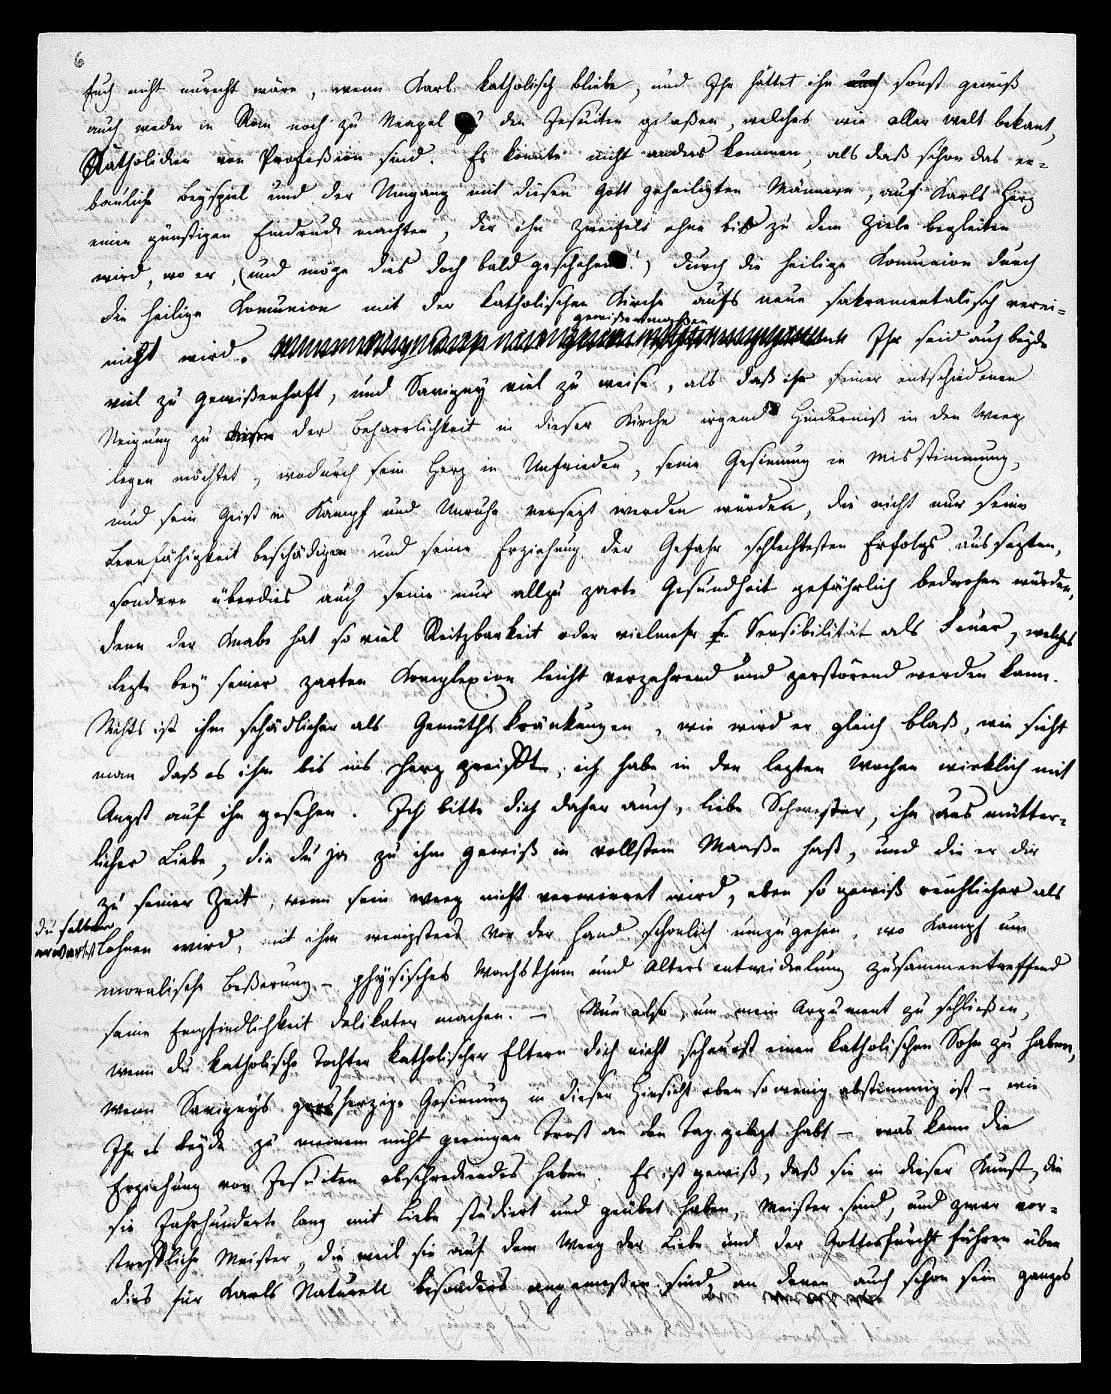 6
Euch nicht unrecht wäre, wenn Karl katholisch bliebe, und Ihr hättet ihn auch sonst gewiß
auch weder in Rom noch zu Neapel zu den Jesuiten gelaßen, welches wie aller Welt bekant,
Katholicken von Profeßion sind. Es konnte nicht anders kommen, als daß schon das er-
bauliche Beyspiel und der Umgang mit diesen Gott geheiligten Männern, auf Karls Herz
einen günstigen Eindruck machten, der ihn Zweifels ohne bis zu dem Ziele begleiten
wird, wo er, (und möge dies doch bald geschehen!) durch die heilige Komunion durch
die heilige Komunion mit der katholischen Kirche aufs neue sakramentalisch verei-
gewißermaßen
nicht wird. Ihr seid auch beyde
viel zu gewißenhaft, und Savigny viel zu weise, als daß ihr seiner entschiedenen
Neigung zu dieser der Beharrlichkeit in dieser Kirche irgend Hinderniß in den Weeg
legen möchtet, wodurch sein Herz in Unfrieden, seine Gesinnung in Misstimmung,
und sein Geist in Kampf und Unruhe versezt werden würden, die nicht nur seine
Lernfähigkeit beschädigen und seine Erziehung der Gefahr schlechtesten Erfolgs aussezten,
sondern überdies auch seine nur allzu zarte Gesundheit gefährlich bedrohen würden,
denn der Knabe hat so viel Reitzbarkeit oder vielmehr Sensibilität als Feuer, welches
lezte bey seiner zarten Komplexion leicht verzehrend und zerstörend werden kann.
Nichts ist ihm schädlicher als Gemüths kränkungen, wie wird er gleich blaß, wie sieht
man daß es ihm bis ins Herz greift, ich habe in den lezten Wochen wirklich mit
Angst auf ihn gesehen. Ich bitte dich daher auch, liebe Schwester, ihn aus mütter-
licher Liebe, die du ja zu ihm gewiß in vollstem Maaße hast, und die er dir
zu seiner Zeit, wenn sein Weeg nicht verwirret wird, eben so gewiß reichlicher als
du selber
erwartest lohnen wird, mit ihm wenigstens vor der Hand schonlich umzugehen, wo Kampf um
moralische Beßerung – physisches Wachsthum und Alters entwickelung zusammentreffend
seine Empfindlichkeit delikater machen. – Nun also, um mein Argument zu schließen,
wenn du katholische Tochter katholischer Eltern dich nicht scheuest einen katholischen Sohn zu haben,
wenn Savignys grosherzige Gesinnung in dieser Hinsicht eben so wenig abstimmig ist – wie
Ihr es beyde zu meinem nicht geringen Trost an den Tag gelegt habt – was kann die
Erziehung von Jesuiten abschreckendes haben. Es ist gewiß, daß sie in dieser Kunst, die
sie Jahrhunderte lang mit Liebe studiert und geübet haben, Meister sind, und zwar vor-
trefliche Meister, die weil sie auf dem Weeg der Liebe und der Gottesfurcht führen eben
dies für Karls Naturell besonders angemeßen sind, an denen auch schon sein ganzes